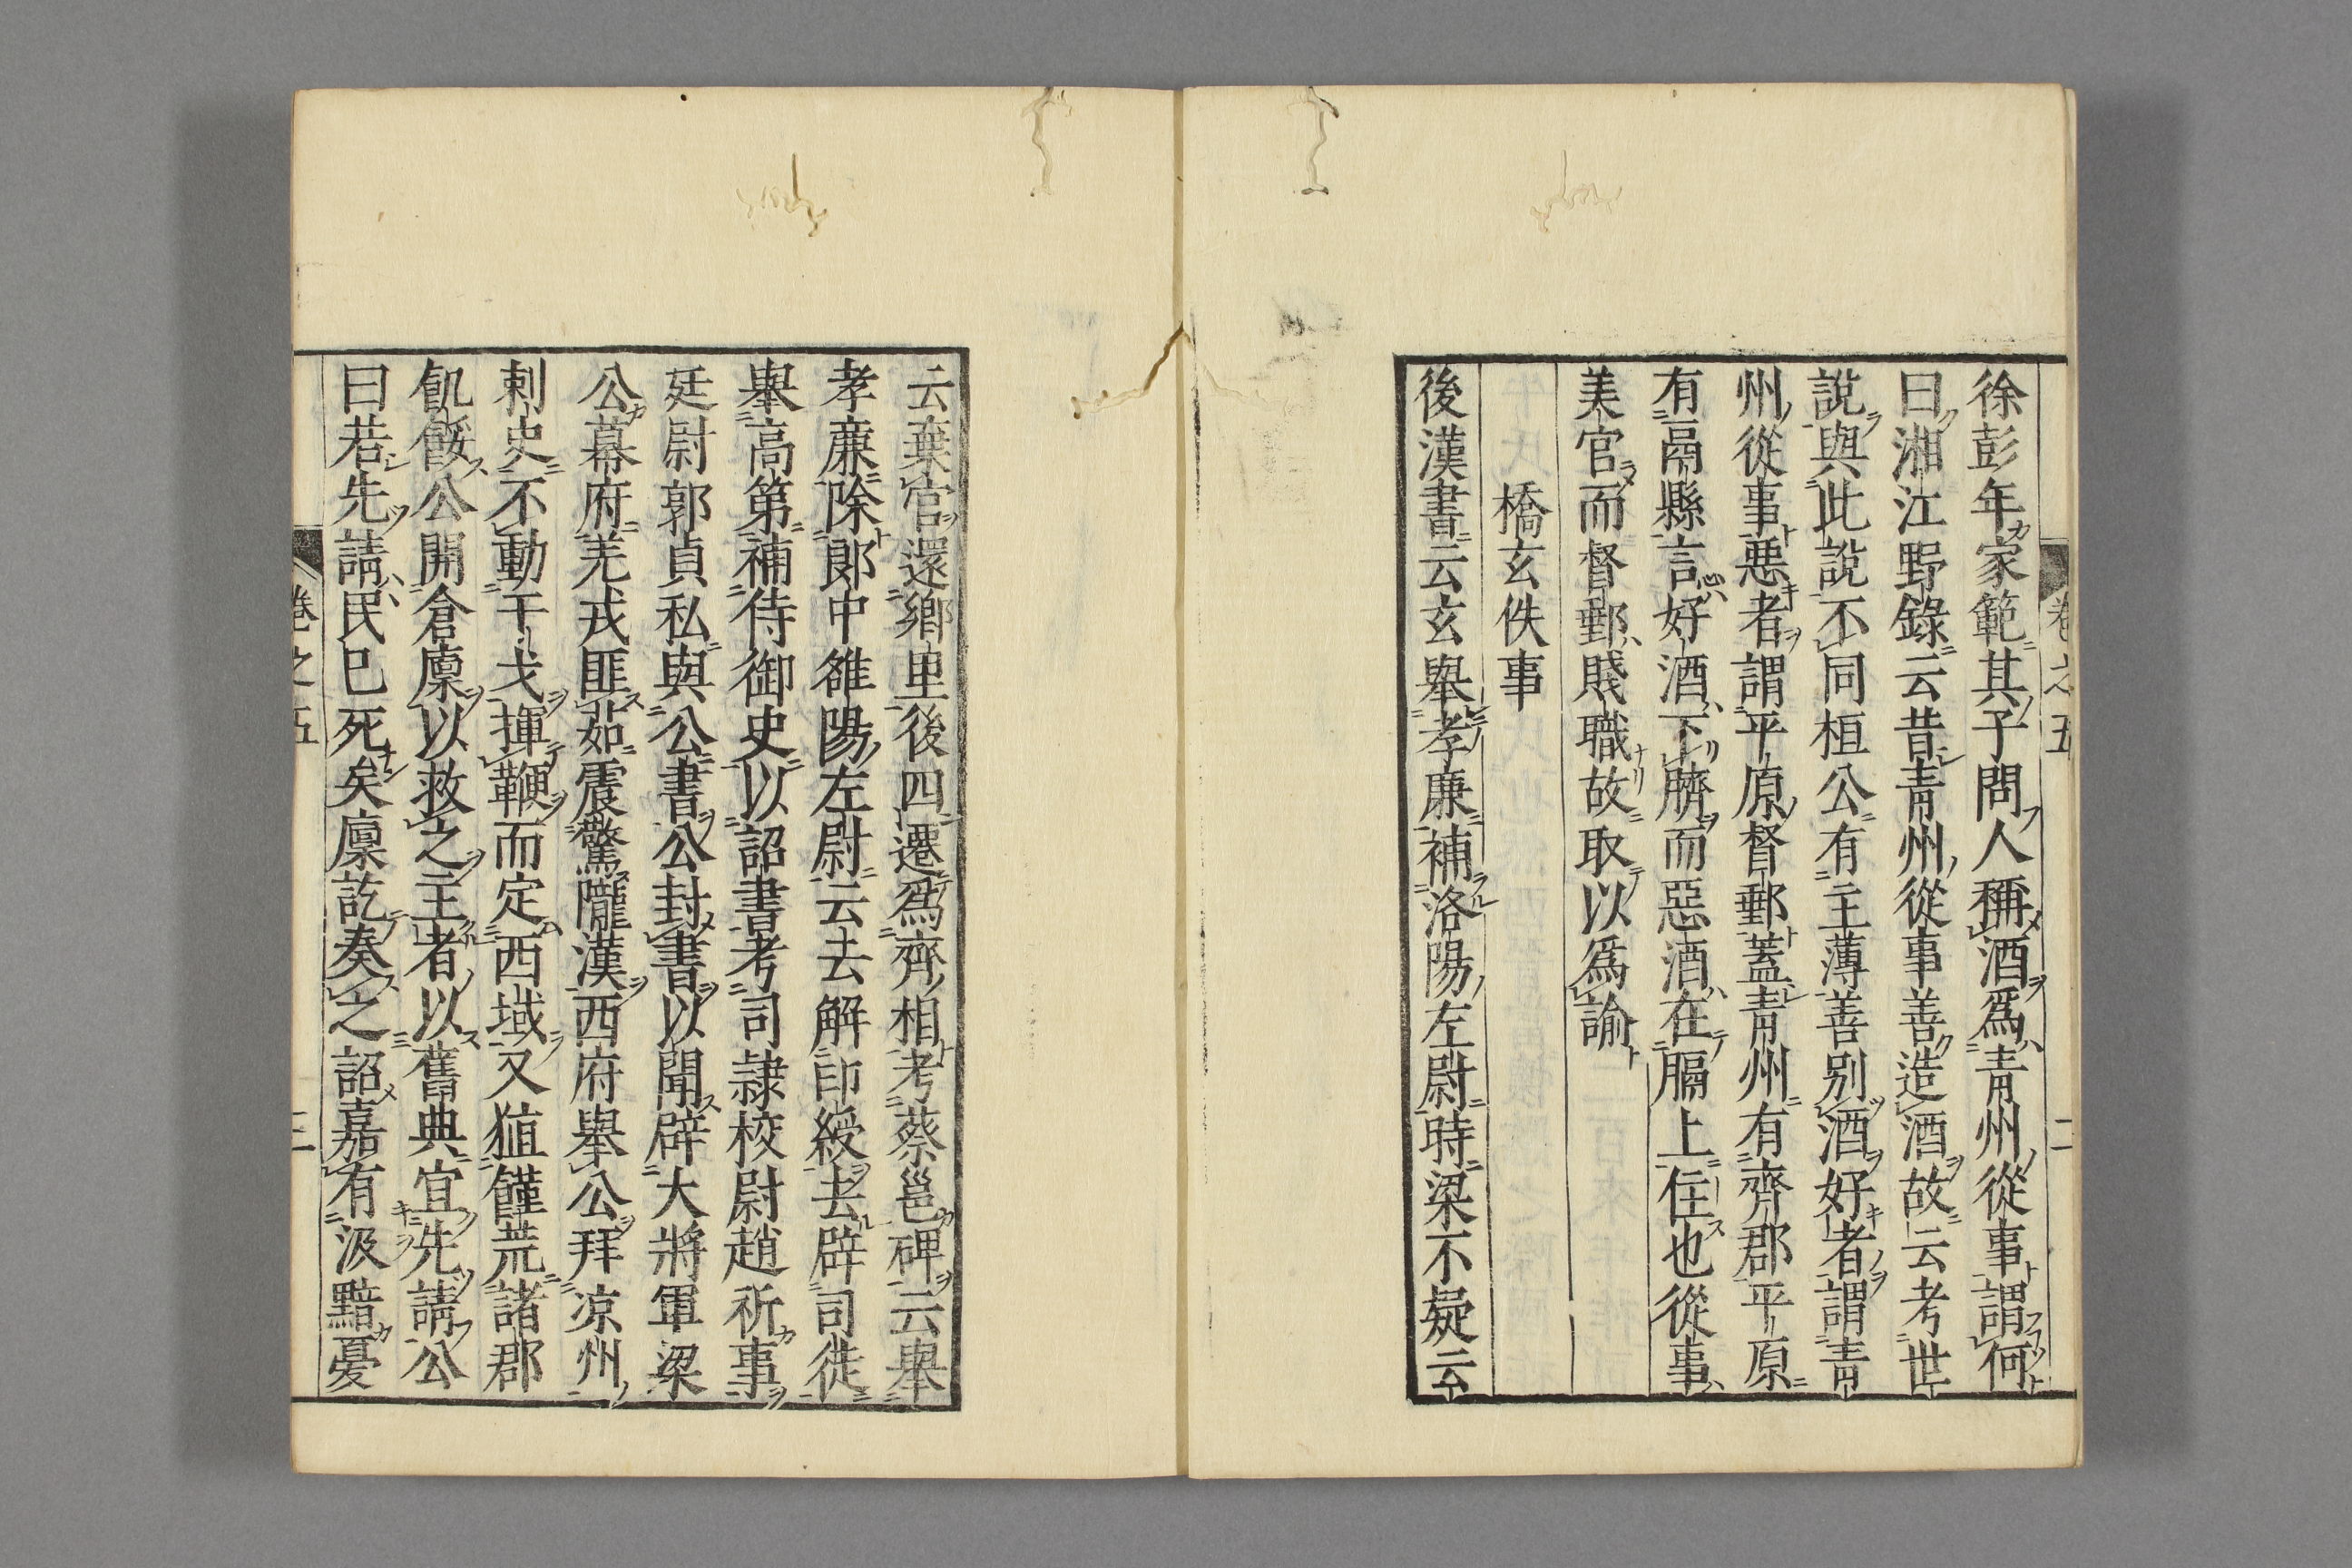 卷之五 二
徐彭年家範其子問人稱酒爲青州從事謂何
曰湘江野錄云昔青州從事善造酒故云考世
說與此說不同桓公有主薄善别酒好者謂青
州從事惡者謂平原督郵蓋青州有齊郡平原
有鬲縣言好酒下臍而惡酒在膈上住也從事
美官而督郵賤職故取以爲諭
橋玄佚事
後漢書云玄舉孝廉補洛陽左尉時梁不疑云
云棄官還鄉里後四遷爲齊相考蔡邕碑云舉
孝廉除郎中雒陽左尉云去解印綬去辟司徒
舉高第補侍御史以詔書考司隷校尉趙祈事
廷尉郭貞私與公書公封書以聞辟大將軍梁
公幕府羌戎匪茹震驚隴漢西府舉公拜凉州
刺史不動干戈揮鞭而定西域又猶饉荒諸郡
飢餒公開倉廩以救之主者以舊典宜先請公
曰若先請民巳死矣廩訖奏之詔嘉有汲黯憂
卷之五 三